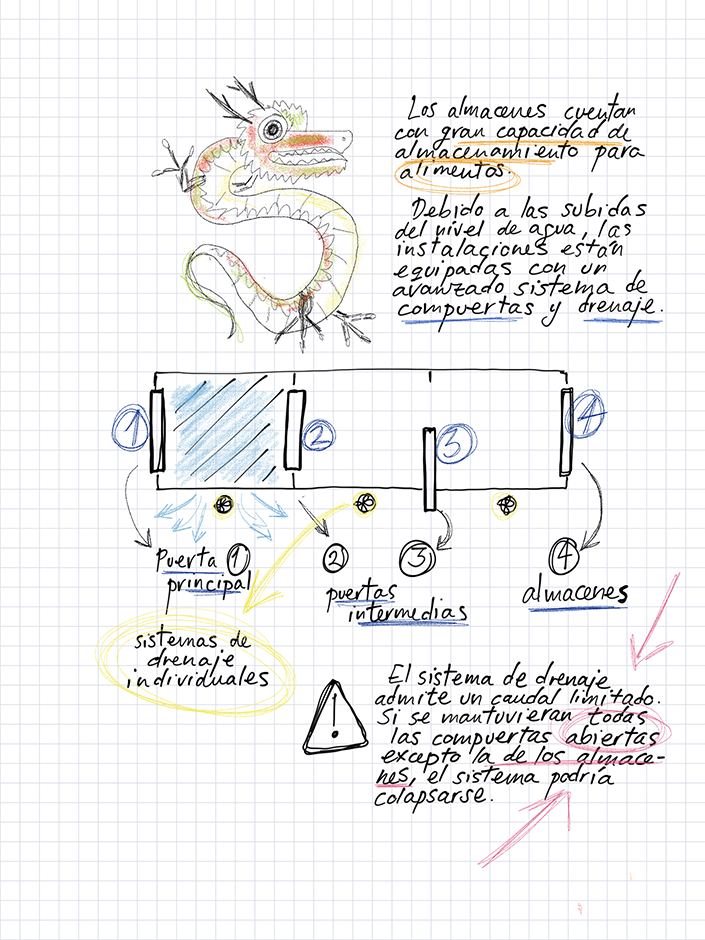 Los almacenes cuentan
con gran capacidad de
almacenamiento para
alimentos.
Debido a las subidas
del nivel de agua, las
instalaciones están
equipadas con un
avanzado sistema de
compuertas y drenaje.
1
2
3
4
puerta 1
principal
2
puertas
intermedias
3
4
almacenes
sistemas de
drenaje
individuales
!
El sistema de drenaje
admite un caudal limitado.
Si se mantuvieran todas
las compuertas abiertas
excepto la de los almace-
nes, el sistema podría
colapsarse.